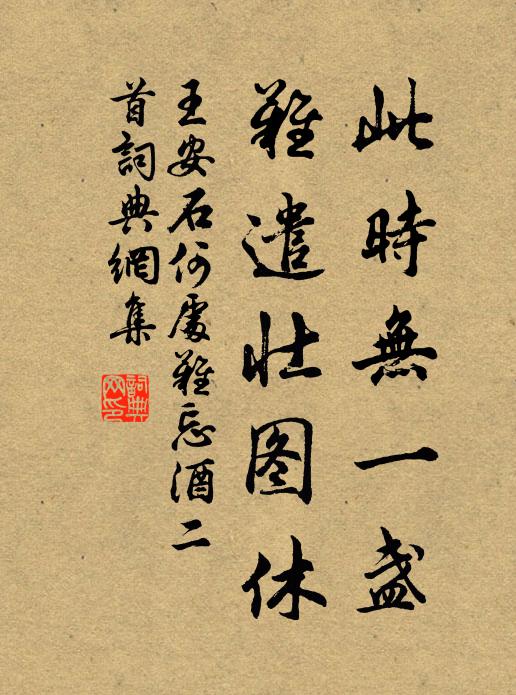 此時無一盞
難遣壯图休
王安石何處難忘酒二
首詞典網集
詞典
网印